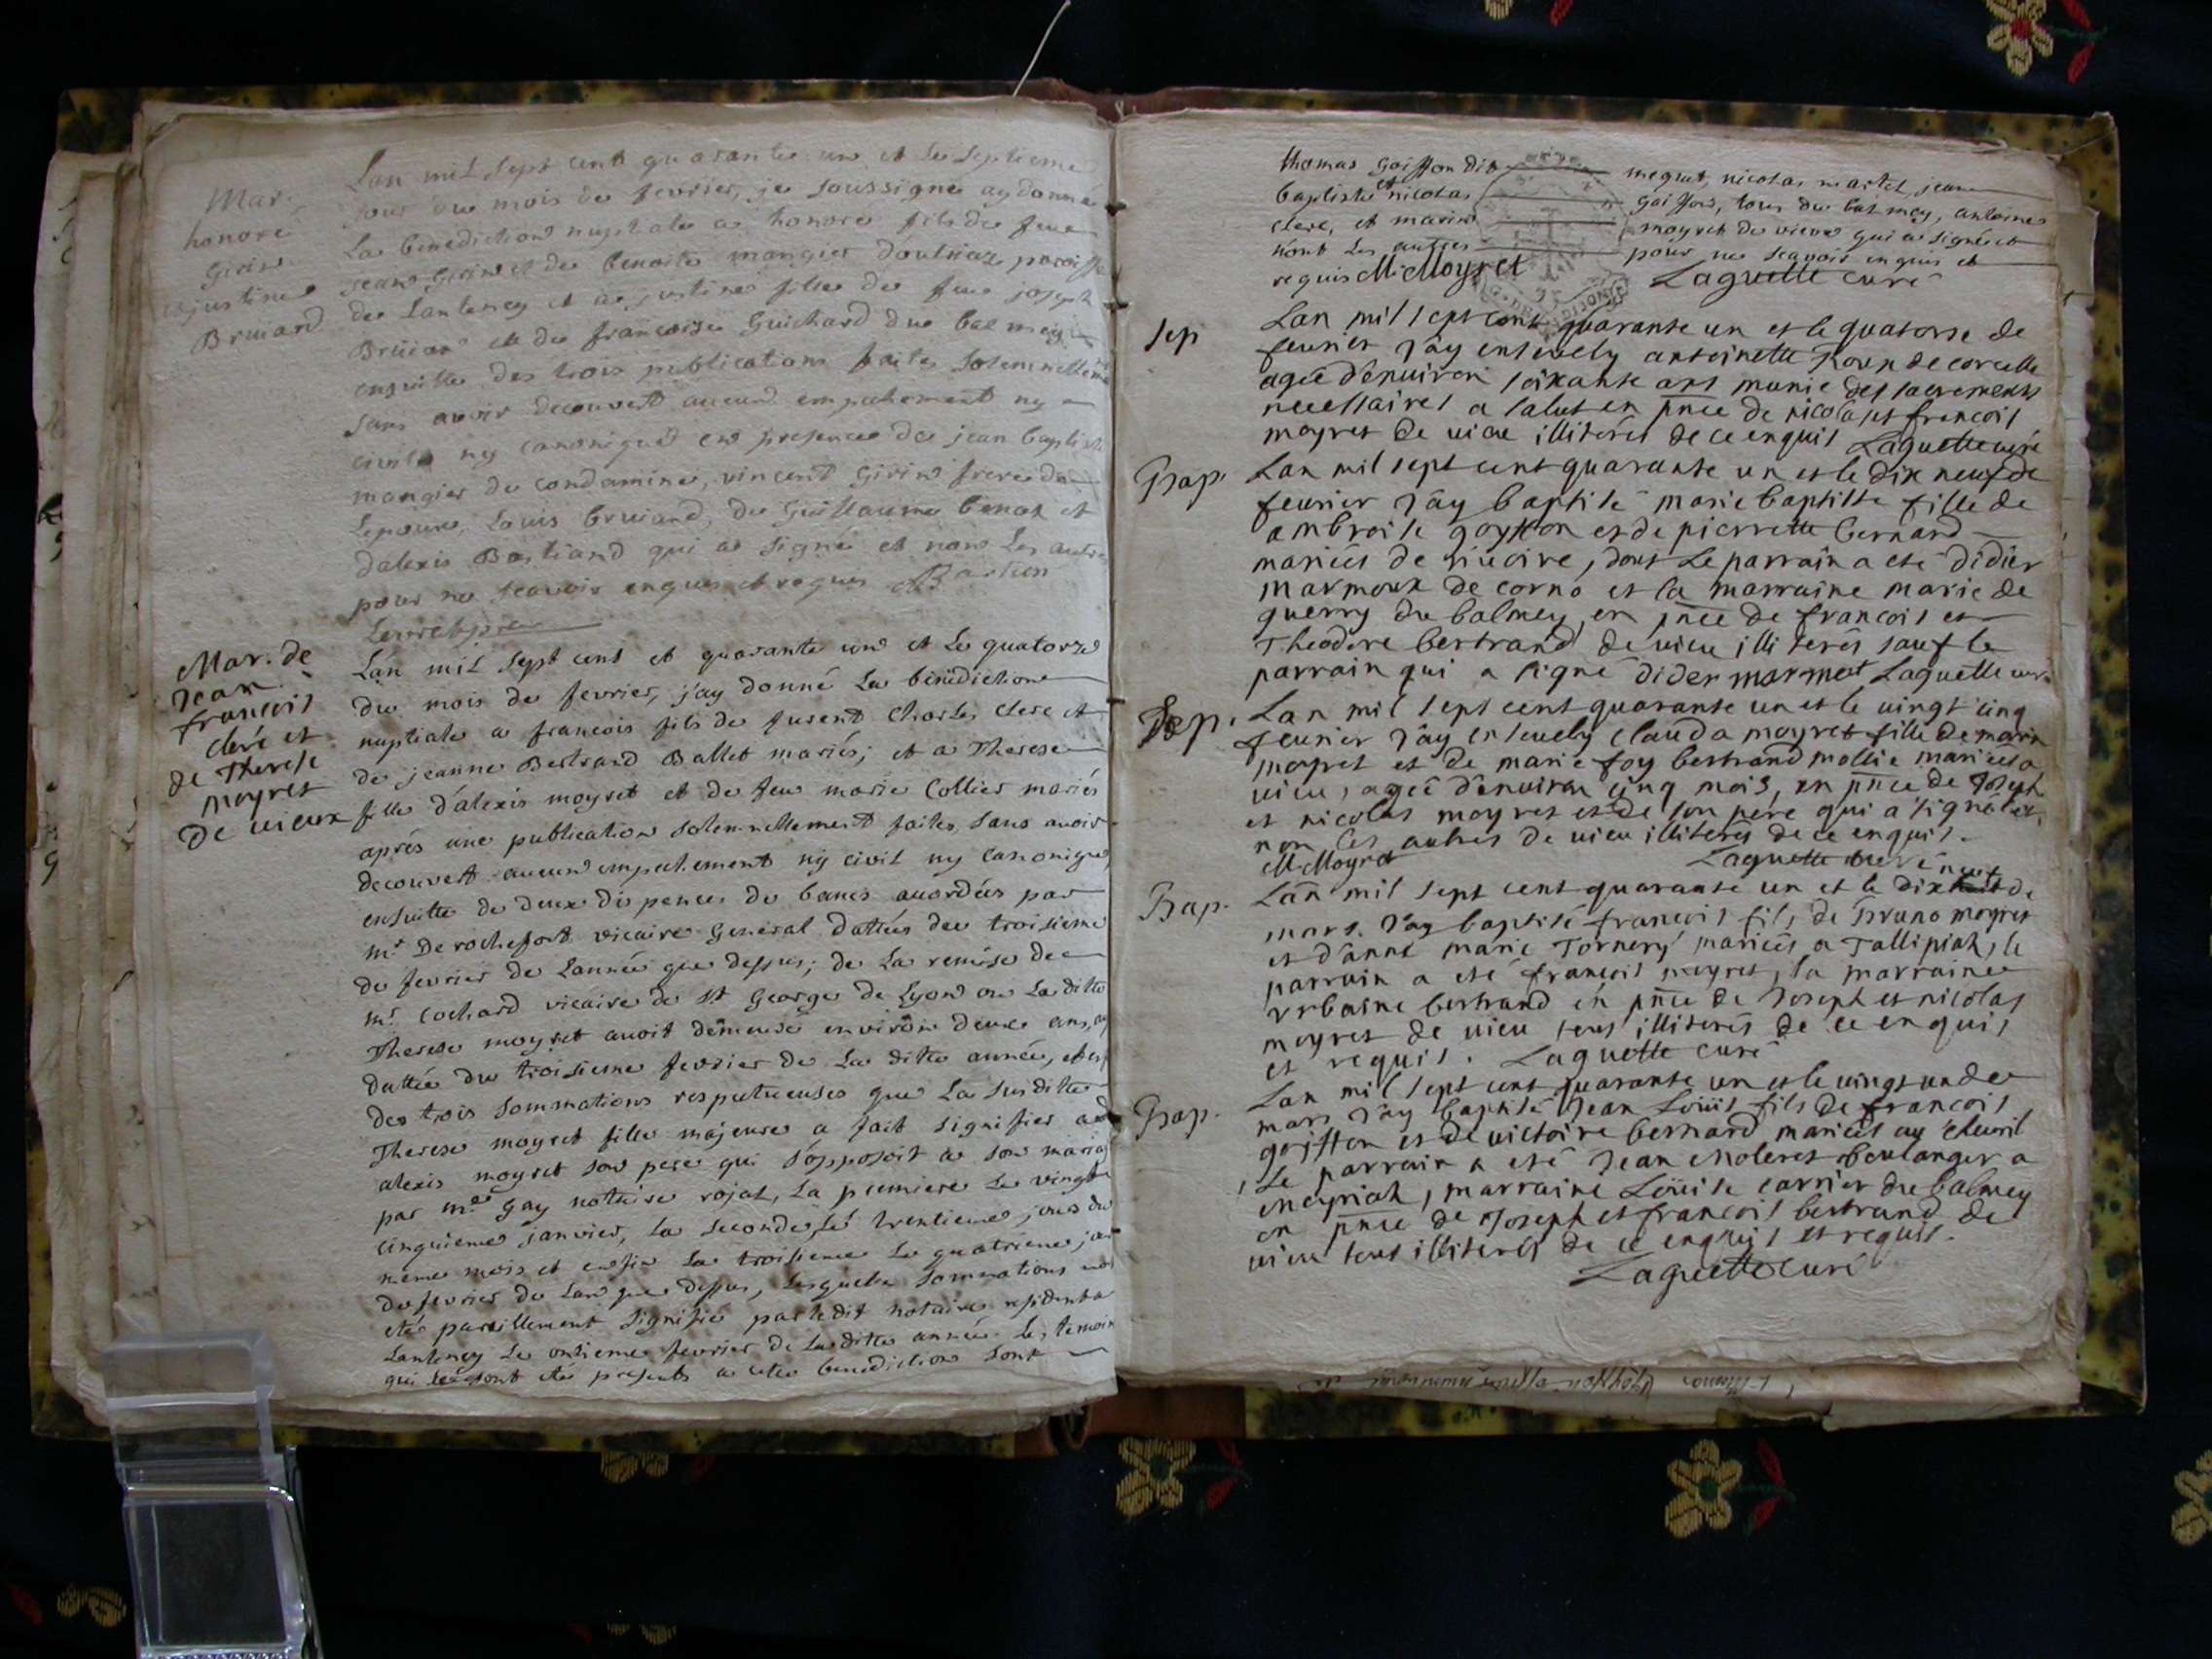 Mar.
honoré
Girin
et justine
Bruiard
Lan mil sept cent quarante un et le septieme
jour du mois de fevrier, je soussigné ay donné
La benediction nuptiale a honoré fils de feu
jean Girin et de benoite mangier doutriaz paroisse
de Lanteney et a justine fille de feu joseph
Bruiard et de francoise Guichard du balmey
ensuitte des trois publications faites solemnellement
sans avoir decouvert aucun empechement ny
civil ny canonique en presence de jean baptiste
mangier de condamine, vincent Girin frere de
Lepoux, Louis bruiard, de Guillaume benoit et
dalexis Bastiand qui a signé et non les autres
pour ne scavoir enquis et requis
Mar. de
Jean
francois
cleré et
de Therese
moyret
de vieux
Lán mil sept cent et quarante un et le quatorze
du mois de fevrier, j'ay donné La bénédiction
nuptiale a francois fils de furent Charles clere et
de jeanne Bertrand Ballet mariés; et a Therese
fille d'alexis moyret et de feue marie Collier mariés
aprés une publication solemnellement faite, sans avoir
decouvert aucun empechement ny civil ny canonique,
ensuitte de deux dispences de bancs accordées par
mr De rochefort vicaire General dattées du troisieme
de fevrier de Lannée que dessus; de La remise de
mr Cochard vicaire de st George de Lyon ou La ditte
Therese moyret avoit demeuré environ deux ans,
dattée du troisieme fevrier de La ditte année, et
des trois sommations respectueuses que La susditte
Therese moyret fille majeure a fait signifier a
alexis moyret son pere qui s'opposoit a son mariage
par me Gay notaire royal, La premiere Le vingt
cinquieme janvier, La seconde Le trentieme jour du
meme mois et enfin La troisieme Le quatrieme jour
de fevrier de Lan que dessus, Lesquelles sommations
été pareillement signifié par ledit notaire resident a
Lanteney Le onzieme fevrier de La ditte année. Les temoins
qui se sont été presents a cette benediction sont
thomas Goiffon dit megret, nicolas martel, jean
baptiste et nicolas Goiffon, tous du balmey, antoine
clere, et marin moyret de vieux qui a signé et
nont les autres pour ne scavoir enquis et
requis M: Moyret Laguette curé
sep
Lan mil sept cent quarante un et le quatorse de
feurier J'ay enseuely antoinette Roun de corcelle
agée d'enuiron soixante ans munie des sacrements
necessaires a salut en pnce de nicolas et francois
moyret de uieu illiterés de ce enquis Laguette curé
Bap.
Lan mil sept cent quarante un et le dix neuf de
feurier J'ay baptisé marie baptiste fille de
ambroise goyffon et de pierrette bernard
mariés de , dont Le parrain a eté didier
marmoux de corno et la marraine marie de
guerry du balmey, en pnce de francois et
Theodore bertrand de uieu illiterés sauf le
parrain qui a signé dider marmet Laguette curé
Sep.
Lan mil sept cent quarante un et le uingt cinq
feurier J'ay enseuely clauda moyret fille de marin
moyret et de marie foy bertrand mollie mariés a
uieu, agée d'enuiron cinq mois, en pnce de Joseph
et nicolas moyret et de son pére qui a signé et
non les autres de uieu illiterés de ce enquis.
M: Moyret Laguette curé
Bap.
Lan mil sept cent quarante un et le dix neuf de
mars. J'ay baptisé francois fils de Bruno moyret
et d'anne marie Tornery mariés a Tallipiah, le
parrain a eté francois moyret, la marraine
urbaine bertrand en pnce de Joseph et nicolas
moyret de uieu tous illiterés de ce enquis
et requis. Laguette curé
Bap.
Lan mil sept cent quarante un et le uingt un de
mars J'ay baptisé Jean Loüis fils de francois
goiffon et de uictoire bernard mariés au cheuril
, Le parrain a eté Jean moleret boulanger a
meyriah, marraine Loüise carrier du balmey
en pnce de Joseph et francois bertrand de
uieu tous illiterés de ce enquis et requis.
Laguette curé